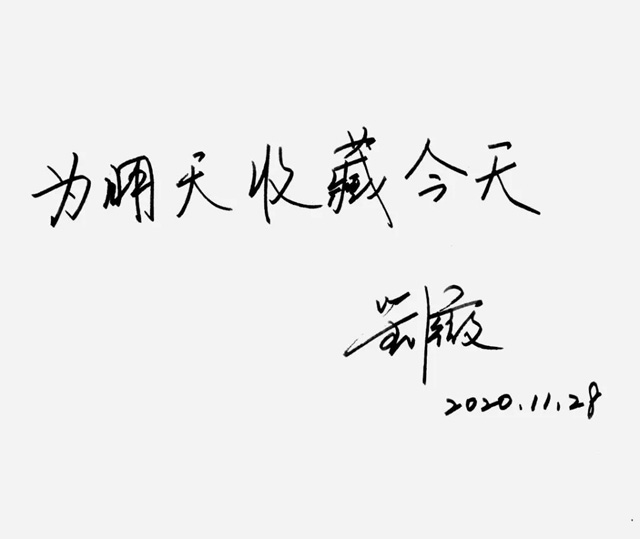 为明天收藏今天
2020.11.28